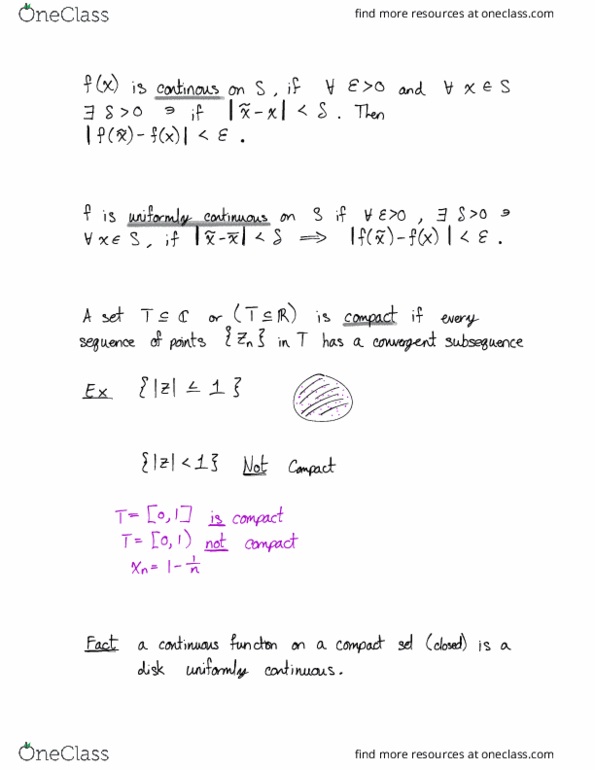 OneClass
find more resources at oneclass.com
f(x) is continous on S, if ∀ ε>0 and ∀ x ∈ S
∃ δ>0 ∍ if |x̃-x| < δ. Then
|f(x̃)-f(x)| < ε.
f is uniformly continuous on S if ∀ ε>0, ∃ δ>0 ∍
∀ x ∈ S, if |x̃-x̄| < δ ⟹ |f(x̃)-f(x)| < ε.
A set T ⊆ ℂ or (T ⊆ ℝ) is compact if every
sequence of points {Zn} in T has a convergent subsequence
Ex {|z| ≤ 1}
{|z| < 1} Not Compact
T = [0,1] is compact
T = [0,1) not compact
xn = 1 - 1/n
Fact a continuous function on a compact set (closed) is a
disk uniformly continuous.
OneClass
find more resources at oneclass.com